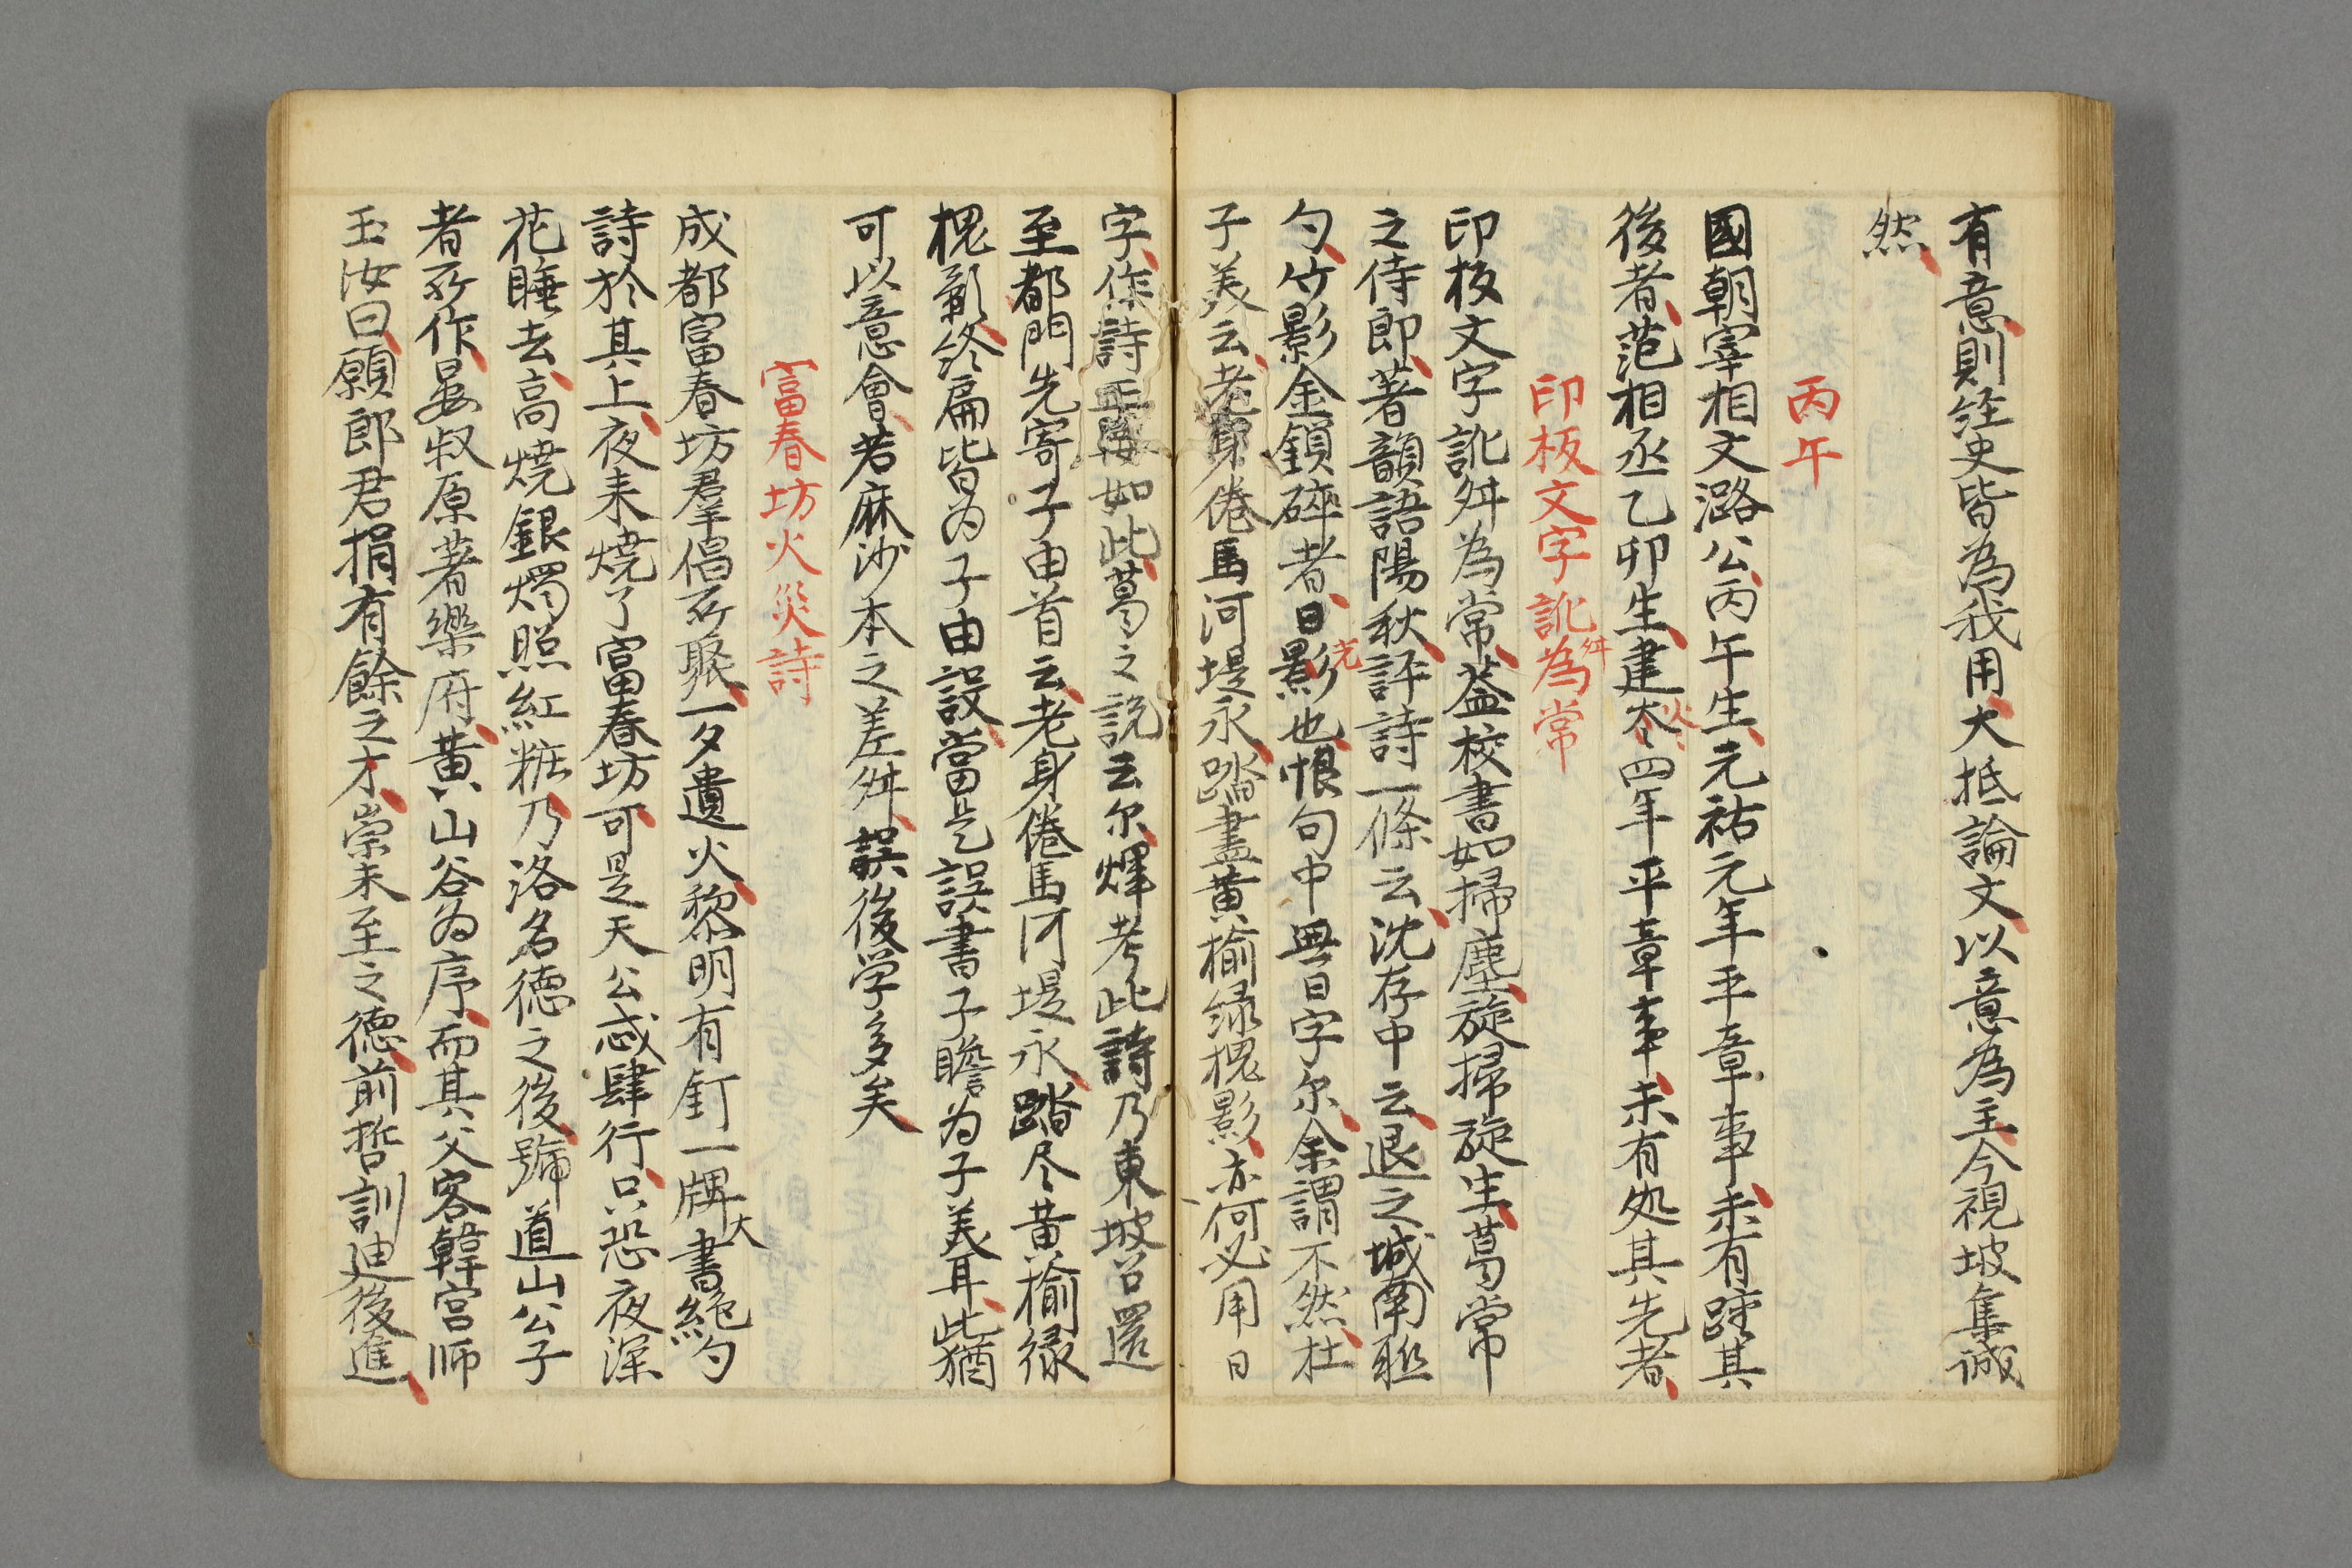 有意則経史皆為我用大抵論文以意為主今視坡集誠
然
丙午
國朝宰相文潞公丙午生元祐元年平章事未有踵其
後者范相丞乙卯生建炎四年平章事未有処其先者
印板文字訛舛為常
印板文字訛舛為常葢校書如掃塵旋掃旋生葛常
之侍郎著韻語陽秋評詩一條云沈存中云退之城南聯
句竹影金鎖碎者日光也恨句中無日字尔余謂不然杜
子美云老身倦馬河堤永踏盡黄榆緑槐影亦何必用日
字作詩正要如此葛之說云尔煇考此詩乃東坡召還
至都門先寄子由首云老身倦馬河堤永踏尽黄榆緑
槐影終扁皆為子由設當是誤書子瞻為子美耳此猶
可以意會若麻沙本之差舛誤後学多矣
富春坊火災詩
成都富春坊羣倡所聚一夕遺火黎明有釘一牌大書絶句
詩於其上夜来燒了富春坊可是天公忒肆行只恐夜深
花睡去高燒銀燭照紅粧乃洛名德之後號道山公子
者所作晏叔原著樂府黄山谷為序而其父客韓宮师
玉汝曰願郎君捐有餘之才崇未至之德前哲訓迪後進